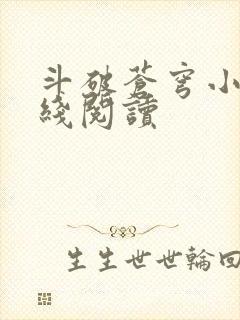 斗破蒼穹小
綫閱讀
生生世世輪回